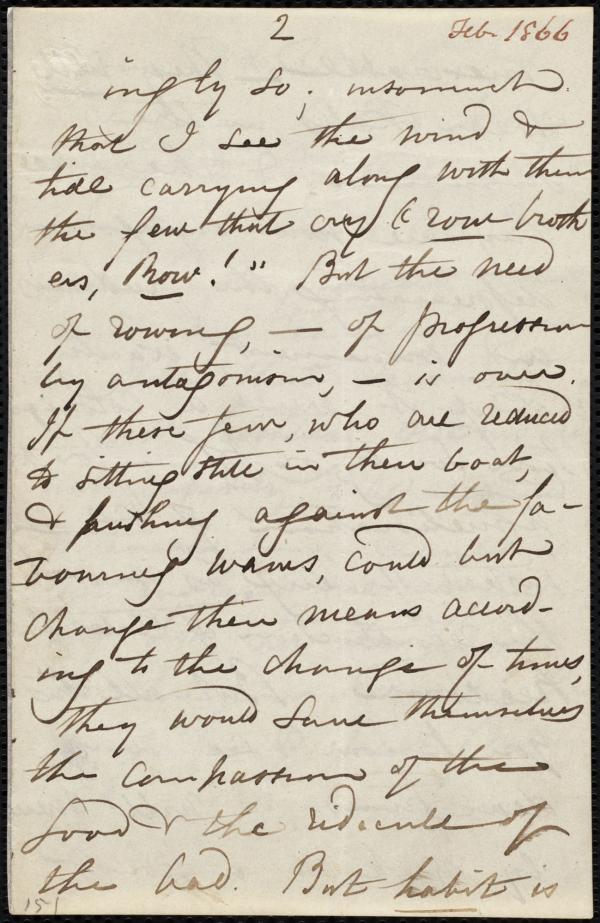 2
Feb. 1866
ingly so; insomuch
that I see the wind &
tide carrying along with them
the few that cry "row broth
ers, Row!" But the need
of rowing, — of progression
by antagonism, — is over.
If these few, who are reduced
to sitting still in their boat,
& pushing against the fa-
vouring waves, could but
change their means accord-
ing to the change of times,
they would save themselves
the compassion of the
good & the ridicule of
the bad. But habit is
151